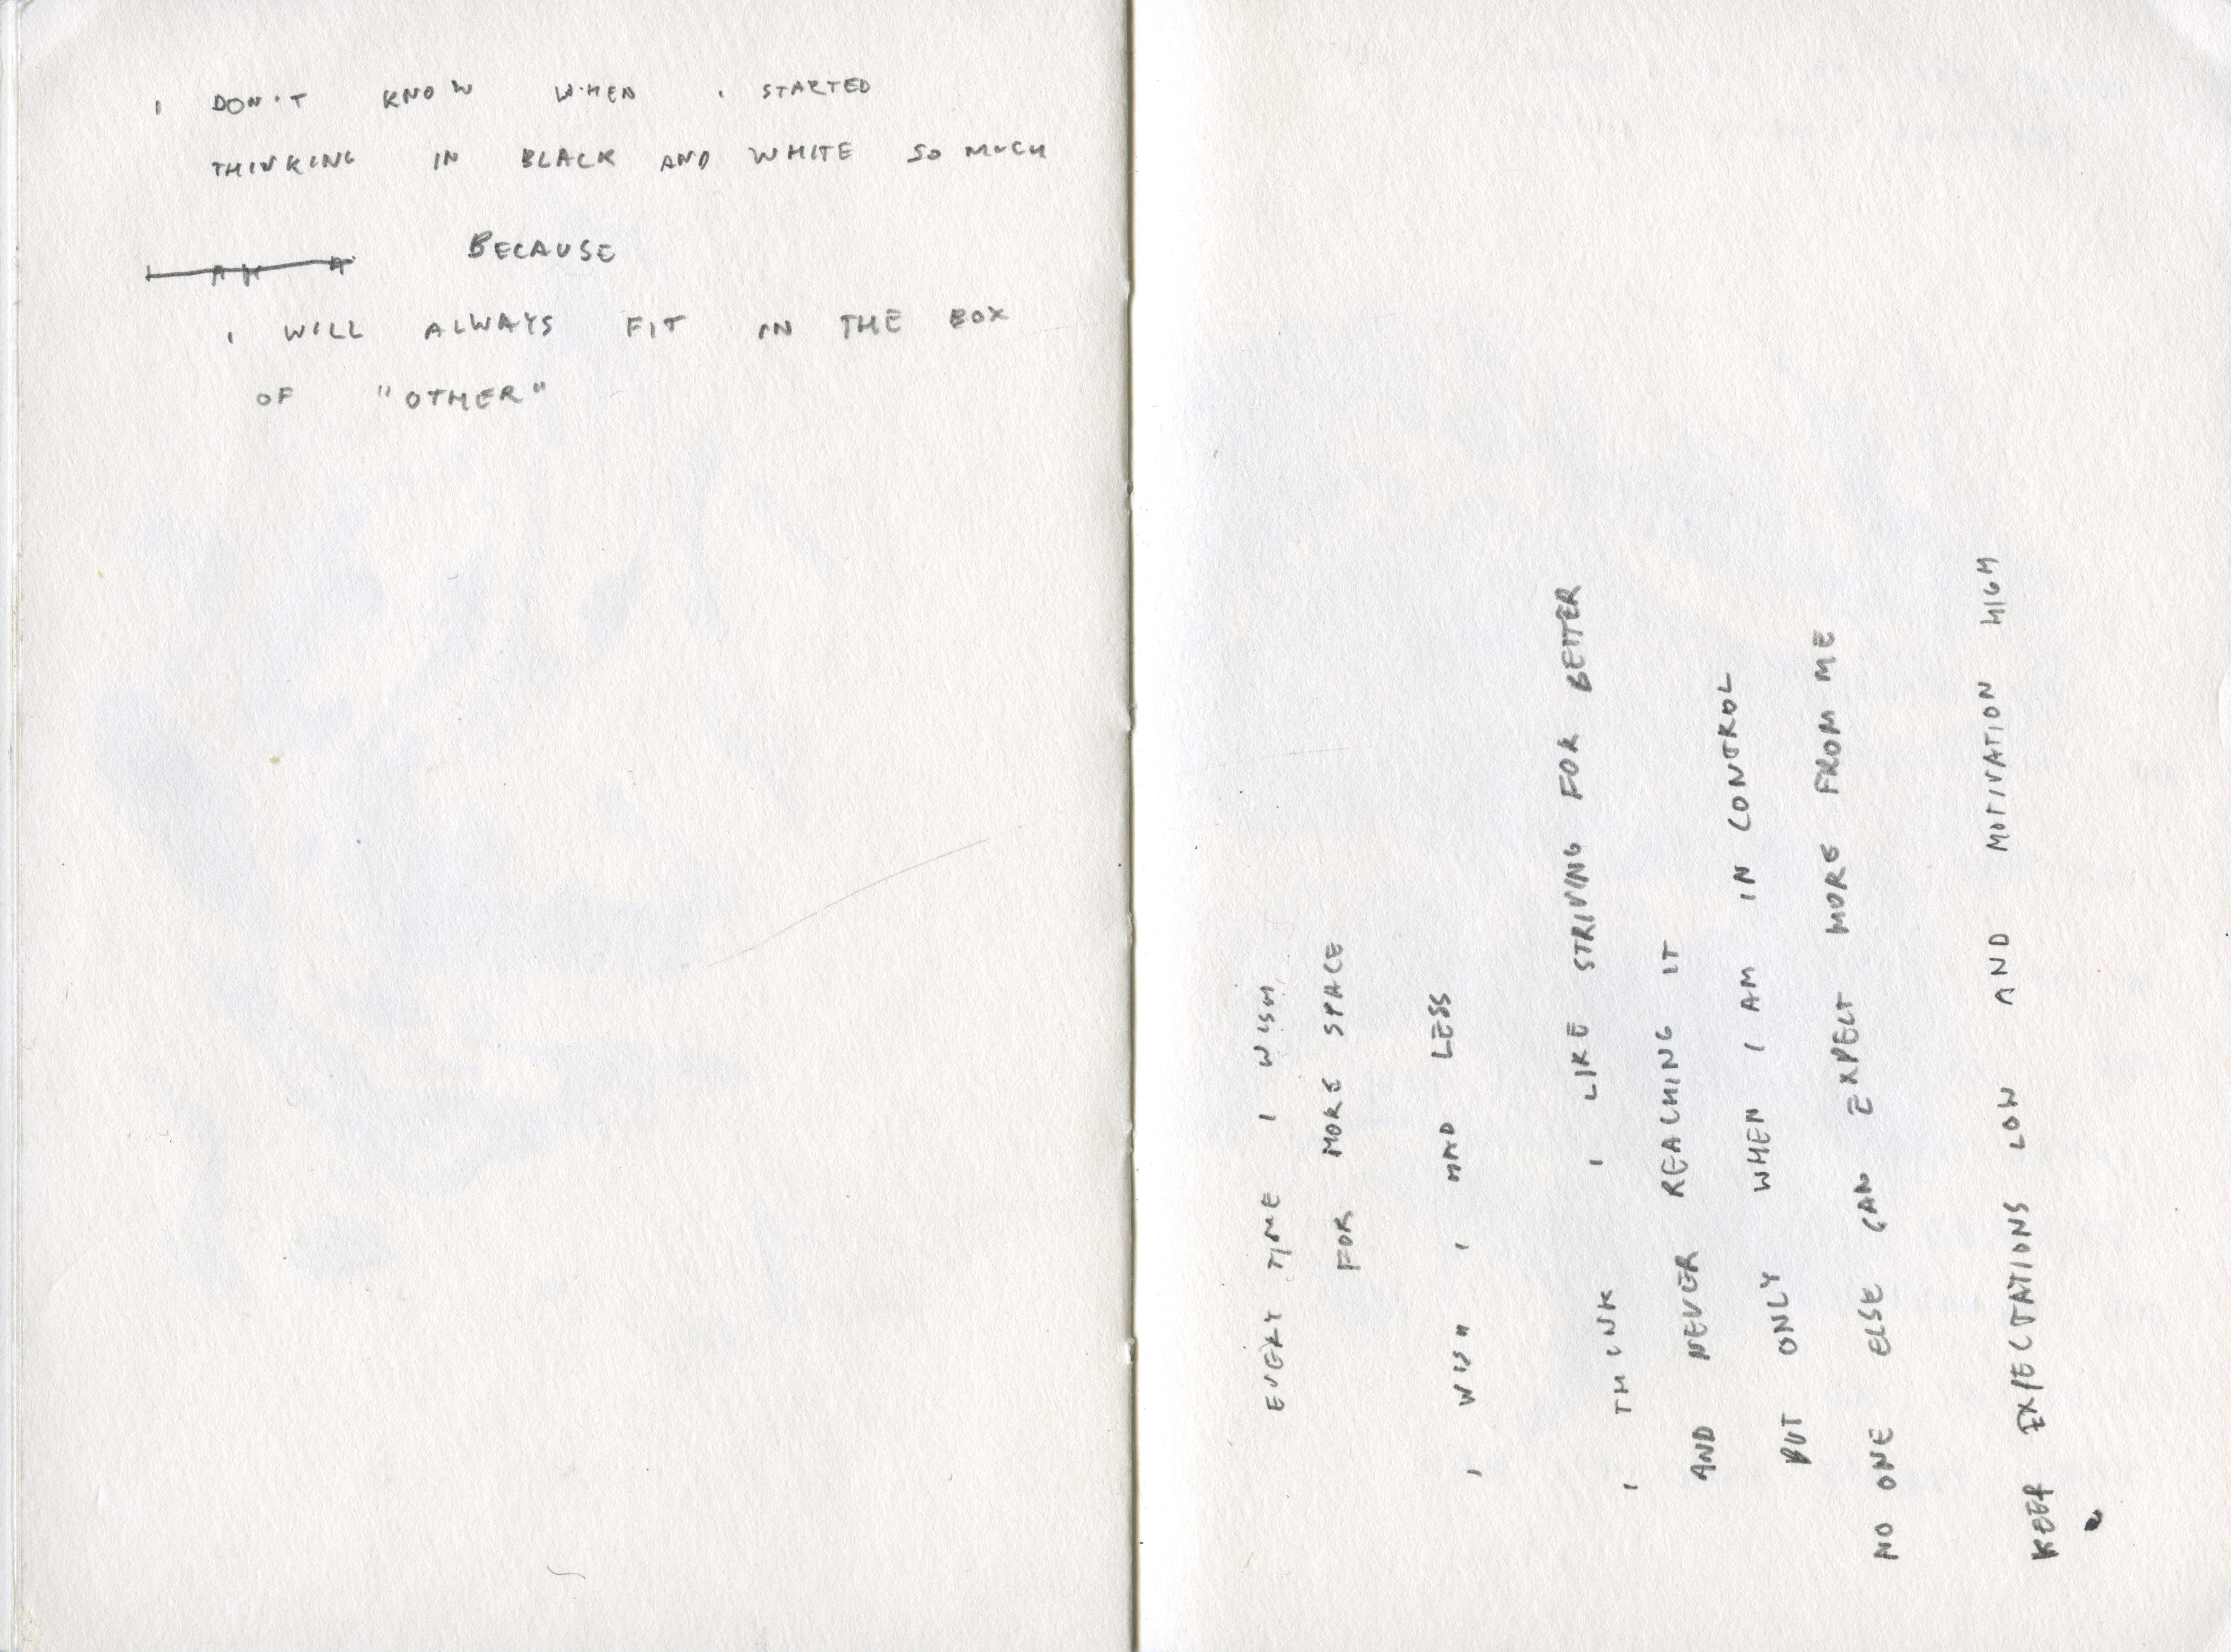 I DON'T KNOW WHEN I STARTED
THINKING IN BLACK AND WHITE SO MUCH
I AM A BECAUSE
I WILL ALWAYS FIT IN THE BOX
OF "OTHER"
EVERY TIME I WISH
FOR MORE SPACE
I WISH I HAD LESS
I THINK I LIKE STRIVING FOR BETTER
AND NEVER REACHING IT
BUT ONLY WHEN I AM IN CONTROL
NO ONE ELSE CAN EXPECT MORE FROM ME
KEEP EXPECTATIONS LOW AND MOTIVATION HIGH